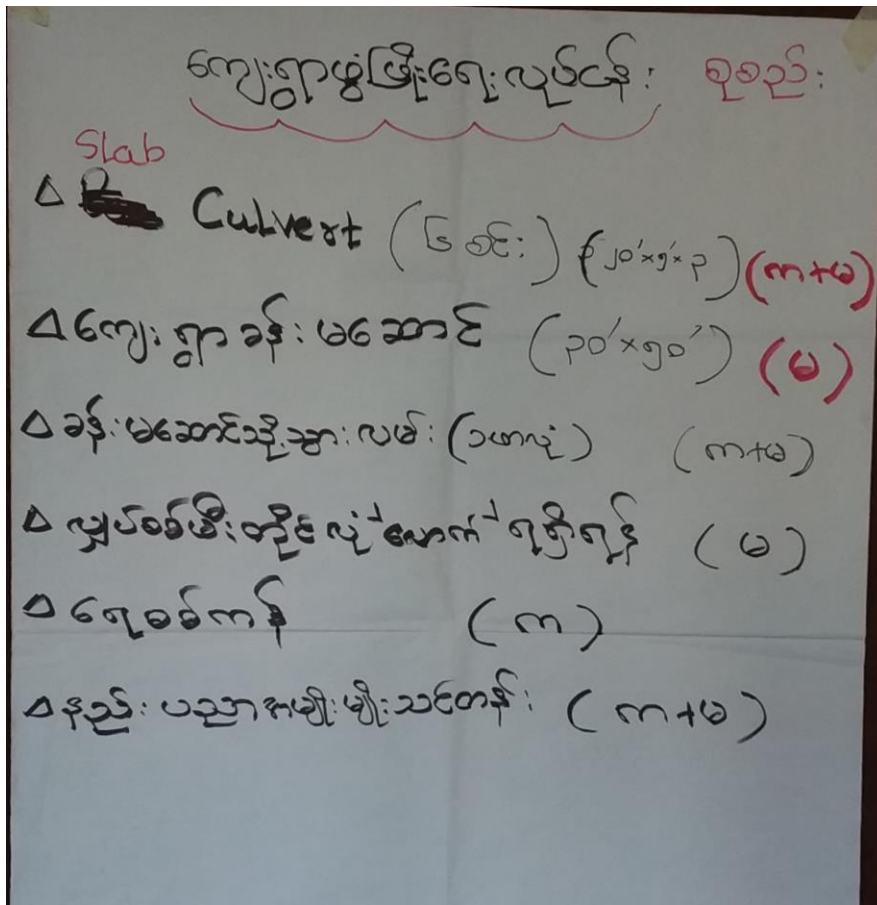 ကျေးရွာဖွံ့ဖြိုးရေးလုပ်ငန်း စုစည်း
Slab
Δ Culvert (မြစင်း) (၂၀'×၅'×၃) (က+မ)
Δ ကျေးရွာခန်းမဆောင် (၃၀'×၅၀') (မ)
Δ ခန်းမဆောင်သို့သွားလမ်း (၁ဖာလုံ) (က+မ)
Δ လျှပ်စစ်မီးတိုင်လုံလောက် ရရှိရန် (မ)
Δ ရေစစ်ကန် (က)
Δ နည်းပညာအမျိုးမျိုးသင်တန်း (က+မ)